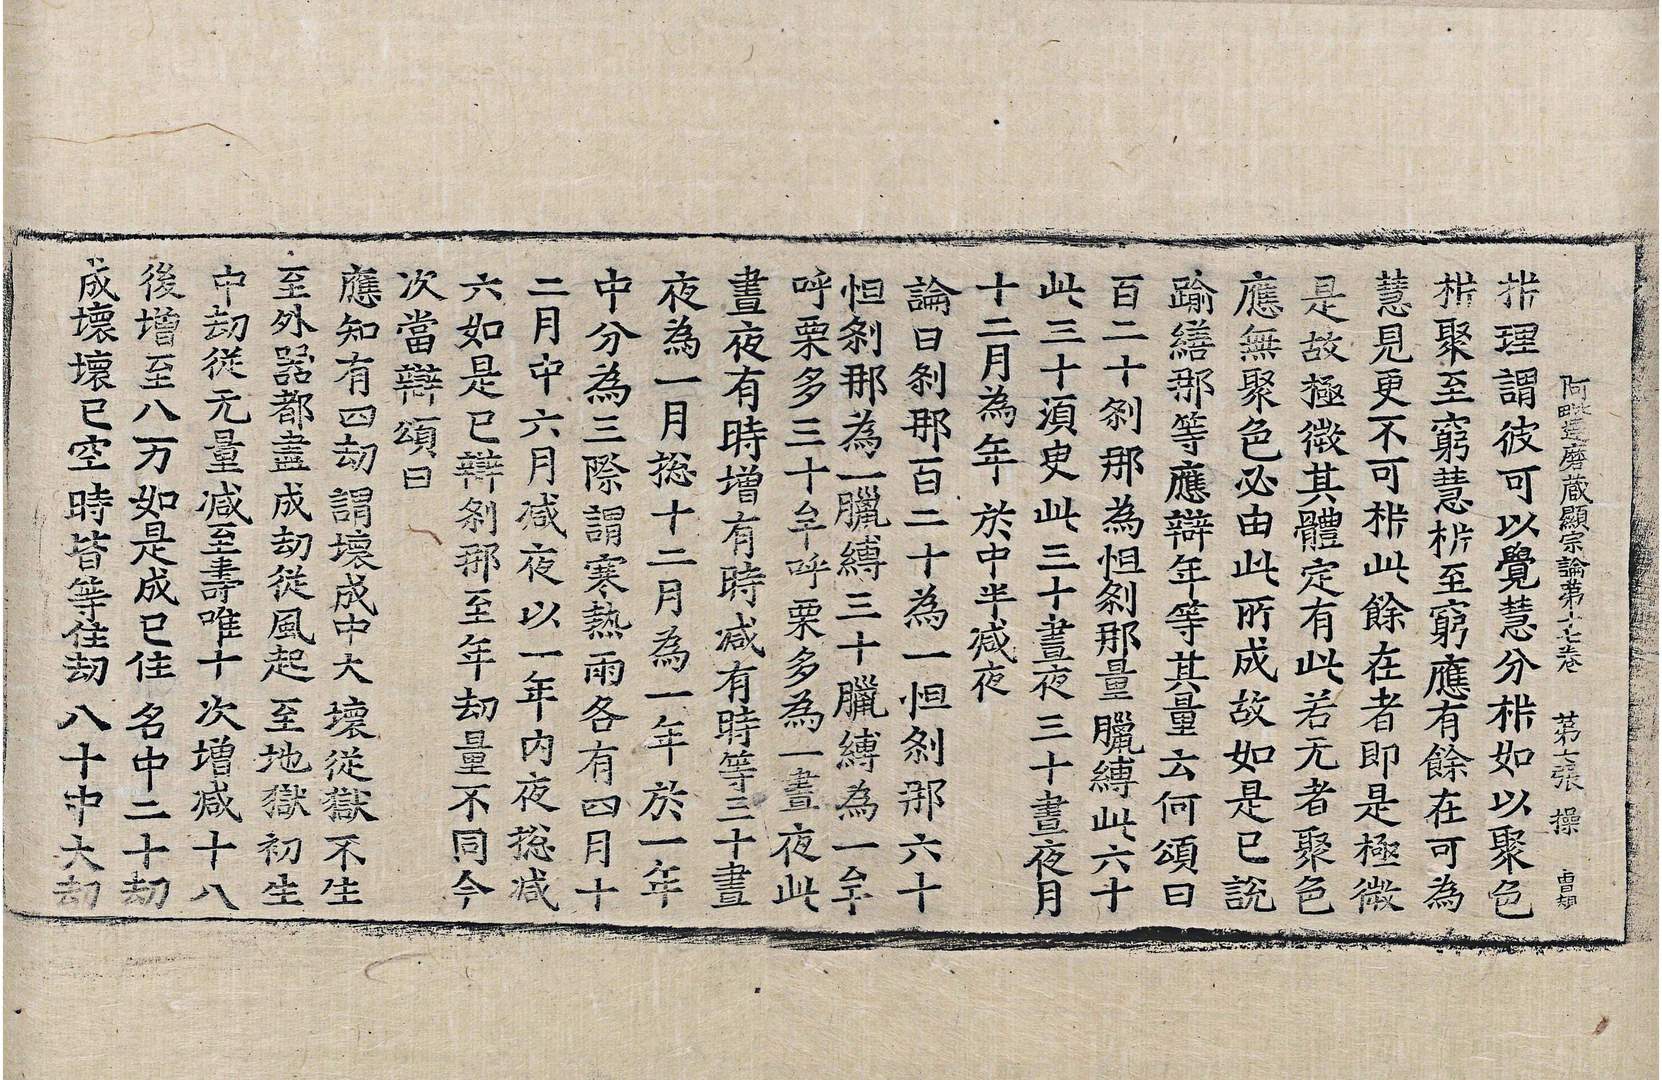 阿毗達磨藏顯宗論第十七卷 第六張 操
推理謂彼可以覺慧分析如以聚色
析聚至窮慧析至窮應有餘在可為
慧見更不可析此餘在者即是極微
是故極微其體定有此若无者聚色
應無聚色必由此所成故如是已說
踰繕那等應辯年等其量云何頌曰
百二十剎那為怛剎那量臘縛此六十
此三十須臾此三十晝夜三十晝夜月
十二月為年於中半減夜
論曰剎那百二十為一怛剎那六十
怛剎那為一臘縛三十臘縛為一牟
呼栗多三十牟呼栗多為一晝夜此
晝夜有時增有時減有時等三十晝
夜為一月揔十二月為一年於一年
中分為三際謂寒熱雨各有四月十
二月中六月減夜以一年內夜揔減
六如是已辯剎那至年劫量不同今
次當辯頌曰
應知有四劫 謂壞成中大 壞從獄不生
至外器都盡 成劫從風起 至地獄初生
中劫從无量 減至壽唯十 次增減十八
後增至八万 如是成已住 名中二十劫
成壞壞已空 時皆等住劫 八十中大劫